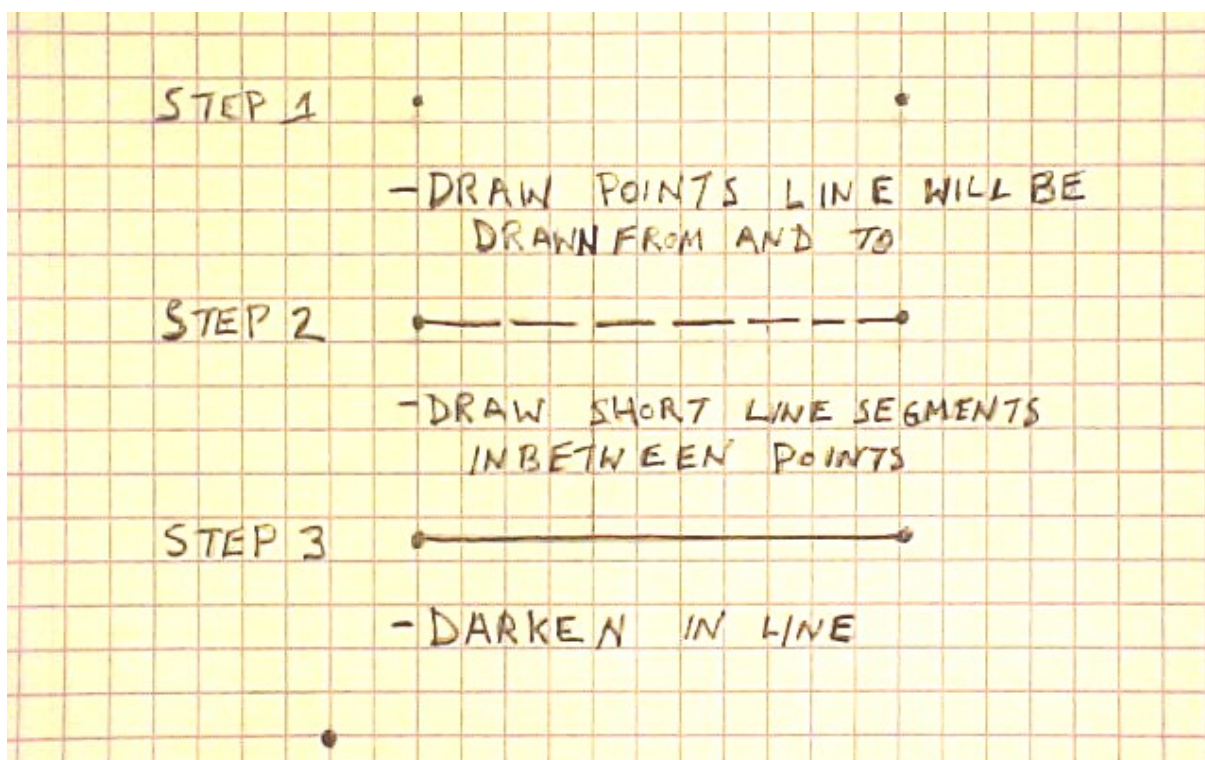 STEP 1
-DRAW POINTS LINE WILL BE
DRAWN FROM AND TO
STEP 2
-DRAW SHORT LINE SEGMENTS
INBETWEEN POINTS
STEP 3
-DARKEN IN LINE